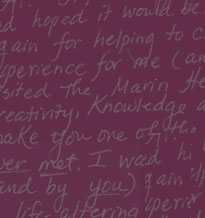 d hoped it would be
gain for helping to c
xperience for me (an
isited the Marin He
reativity, Knowledge a
ake you one of the
ver met. I was hi
and by you) gain
life-altering